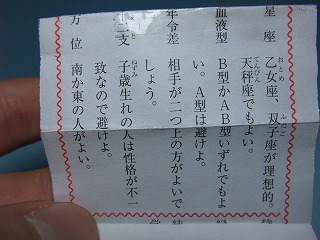 星座 乙女座、双子座が理想的。
天秤座でもよい。
血液型 B型かAB型いずれでもよ
い。A型は避けよ。
年令差 相手が二つ上の方がよいで
しょう。
十二支 子歳生れの人は性格が不一
致なので避けよ。
方位 南か東の人がよい。